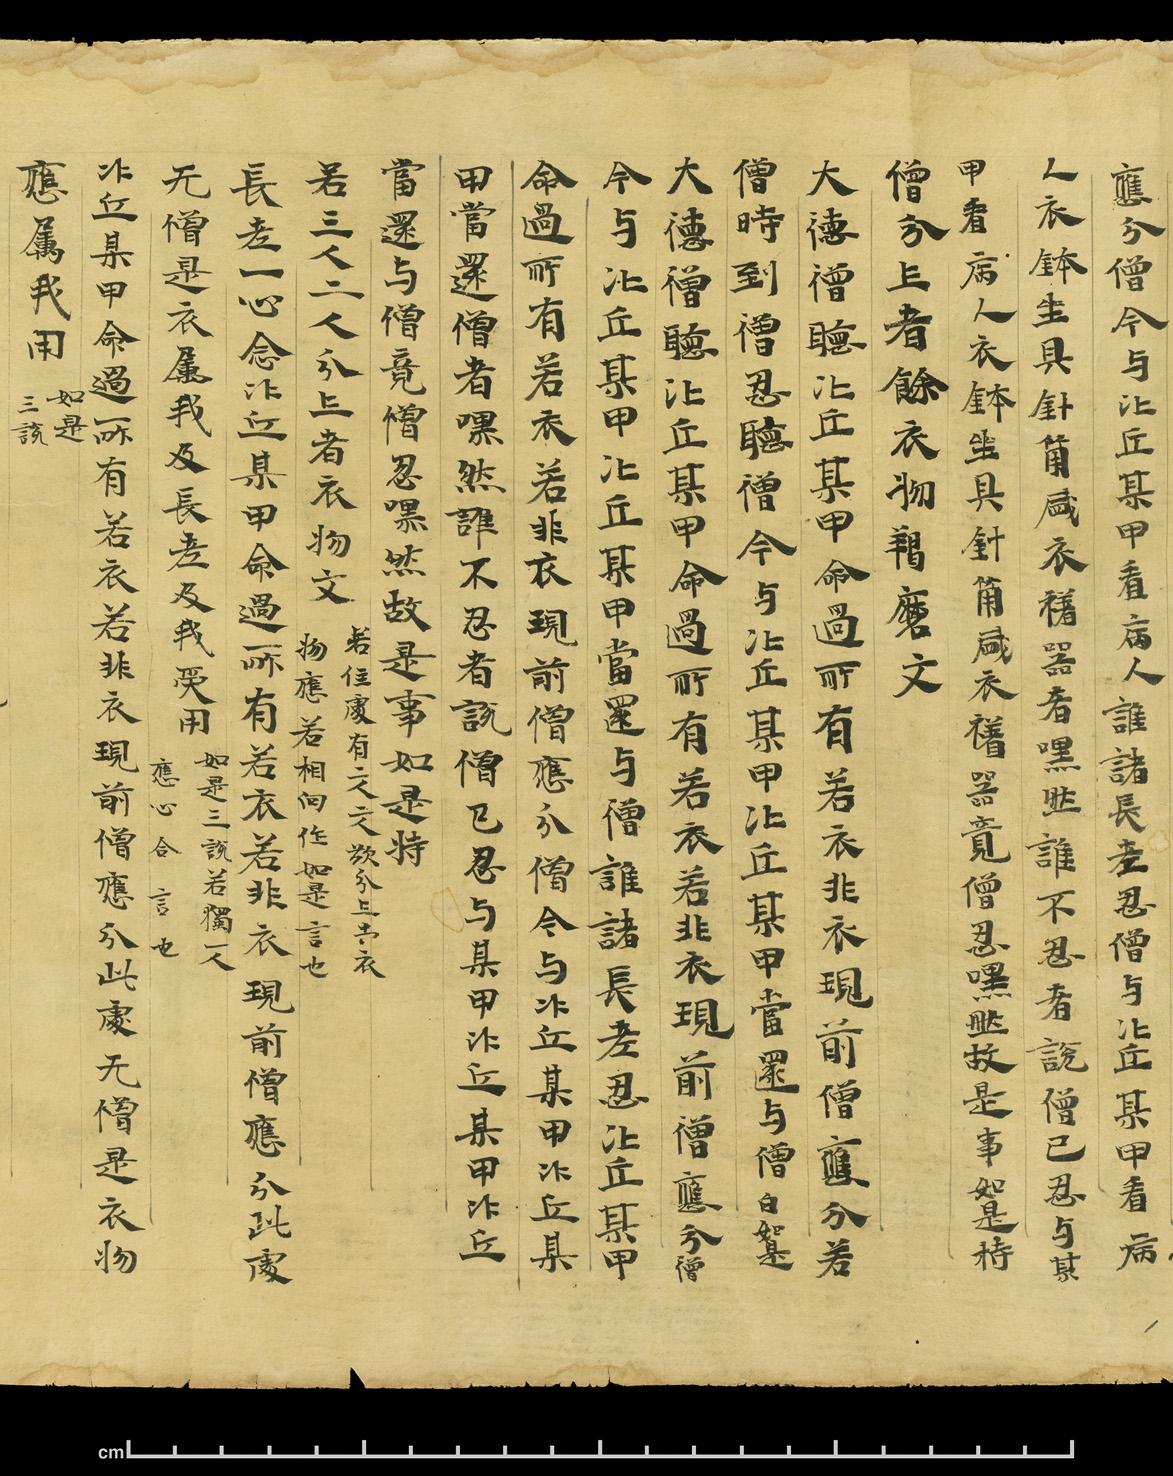 應分僧今与比丘某甲看病人誰諸長老忍僧与比丘某甲看病
人衣鉢坐具針筩咸衣襠器者嘿然誰不忍者說僧已忍与某
甲看病人衣鉢坐具針筩咸衣襠器竟僧忍嘿然故是事如是持
僧分亡者餘衣物羯磨文
大德僧聽比丘某甲命過所有若衣非衣現前僧應分若
僧時到僧忍聽僧今与比丘某甲比丘某甲當還与僧白如是
大德僧聽比丘某甲命過所有若衣若非衣現前僧應分僧
今与比丘某甲比丘某甲當還与僧誰諸長老忍比丘某甲
命過所有若衣若非衣現前僧應分僧今与比丘某甲比丘某
甲當還僧者嘿然誰不忍者說僧已忍与某甲比丘某甲比丘
當還与僧竟僧忍嘿然故是事如是持
若三人二人分亡者衣物文
若住處有二人三人欲分亡者衣
物應若相向作如是言也
長老一心念比丘某甲命過所有若衣若非衣現前僧應分此處
无僧是衣屬我及長老及我受用
如是三說若獨一人
應心念言也
比丘某甲命過所有若衣若非衣現前僧應分此處无僧是衣物
應屬我用
如是
三說